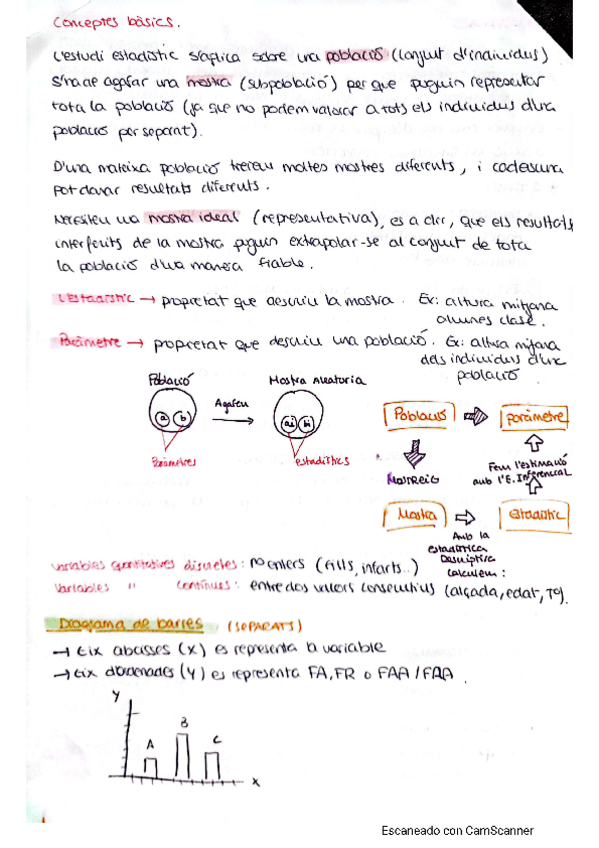 Conceptes bàsics.
L'estudi estadístic s'aplica sobre una població (conjunt d'individus)
S'ha de agafar una mostra (subpoblació) per que puguin representar
tota la població (ja que no podem valorar a tots els individus d'una
població per separat).
D'una mateixa població treiem moltes mostres diferents, i cadescuna
pot donar resultats diferents.
Necesiteu una mostra ideal (representativa), es a dir, que els resultats
interferits de la mostra puguin extrapolar-se al conjunt de tota
la població d'una manera fiable.
L'Estadístic → propietat que descriu la mostra. Ex: altura mitjana
alumnes clase.
Paràmetre → propietat que descriu una població. Ex: altura mitjana
dels individus d'una
població
Població
Mostra Aleatoria
Agafeu
a b
ai bi
Paràmetres
estadístics
Població
paràmetre
Mostreig
Fem l'estimació
amb l'E. Inferencial
Mostra
Estadístic
Amb la
estadística
Descriptiva
calculem:
Variables quantitatives discretes: nº enters (fills, infarts..)
Variables " contínues: entre dos valors consecutius (alçada, edat, Tº).
Diagrama de barres (SEPARATS)
→ Eix abcisses (x) es representa la variable
→ Eix d'ordenades (y) es representa FA, FR o FAA / FRA.
Y
A
B
C
x
Escaneado con CamScanner